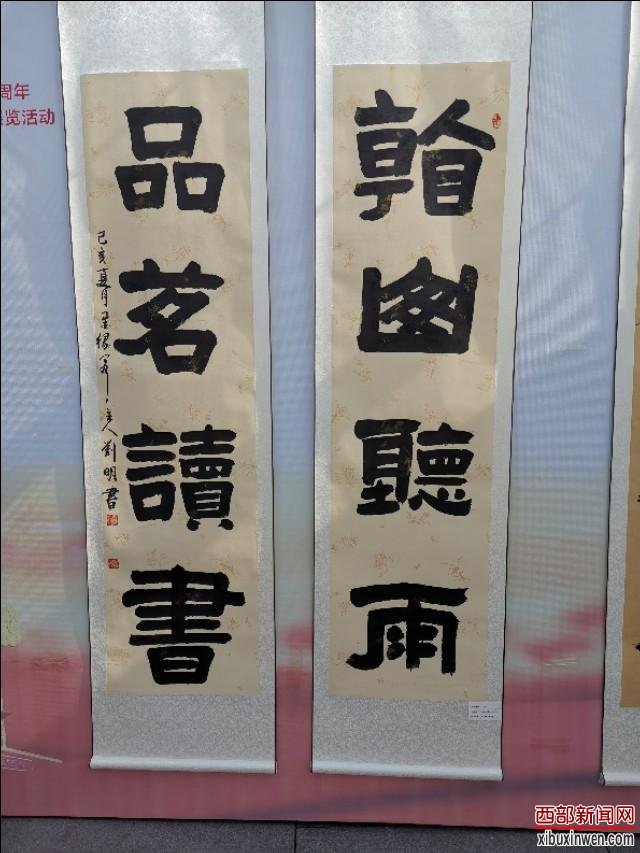 周年
览活动
聽雨
品茗讀書
己亥夏月墨缘斋主人劉明書
西部新闻网
xibuxinwen.com